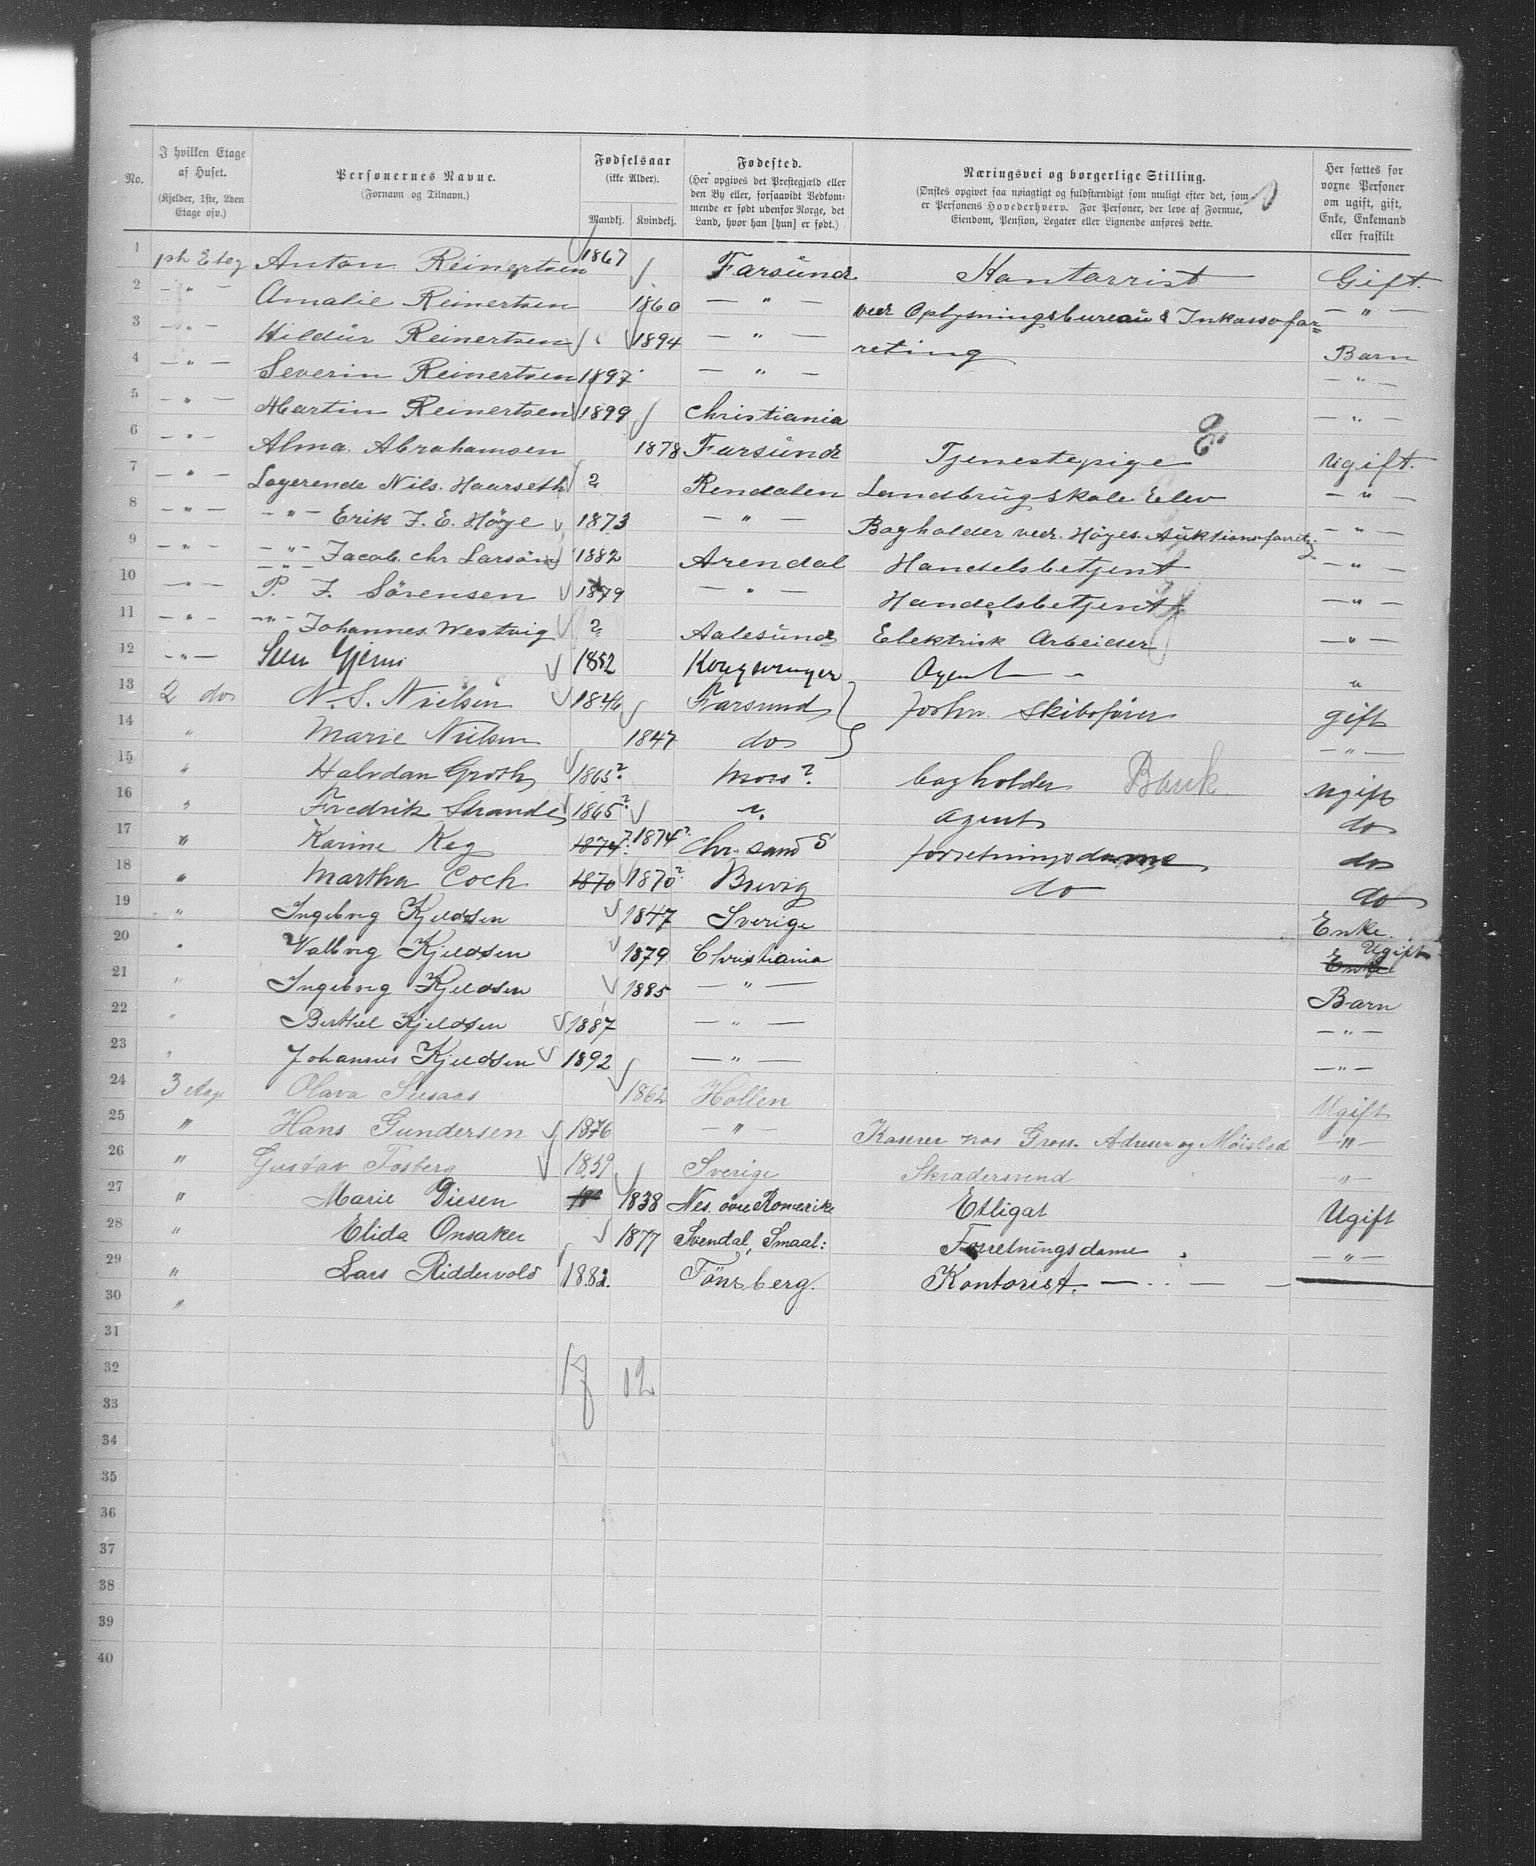 No.
I hvilken Etage af Huset. (Kjelder, 1ste, 2den Etage osv.)
Personernes Navne. (Fornavn og Tilnavn.)
Fødselsaar (ikke Alder). Mandkj. Kvindekj.
Fødested. (Her opgives det Prestegjæld eller den By eller, forsaavidt Vedkommende er født udenfor Norge, det Land, hvor han [hun] er født.)
Næringsvei og borgerlige Stilling. (Ønskes opgivet saa nøiagtigt og fuldstændigt som muligt efter det, som er Personens Hovederhverv. For Personer, der leve af Formue, Eiendom, Pension, Legater eller Lignende anføres dette.
Her sættes for voxne Personer om ugift, gift, Enke, Enkemand eller fraskilt
1 Anton Reinertsen 1867 Farsund Kontorrist Gift.
2 — " — Amalie Reinertsen 1860 — " — ved Oplysningsbureau & Inkassofor= — " —
3 — " — Hildur Reinertsen 1894 — " — reting Barn
4 — " — Severin Reinertsen 1897 — " — — " —
5 — " — Martin Reinertsen 1899 Christiania — " —
6 — " — Alma Abrahamsen 1878 Farsund Tjenestepige Ugift.
7 — " — Logerende Nils. Haarseth ? Rendalen Landbrugskole Elev — " —
8 — " — — " — Erik F. E. Høye 1873 — " — Bogholder ved. Høyes. Auktionsforret. — " —
9 — " — — " — Jacob. Chr Larsön 1882 Arendal Handelsbetjent — " —
10 — " — — " — P. F. Sörensen 1879 — " — Handelsbetjent — " —
11 — " — — " — Johannes. Westvig ? Aalesund Elektrisk Arbeider — " —
12 — " — 1852 Kongsvinger Agent "
13 2 do N. S. Nielsen 1846 Farsund Skibsfører gift
14 " Marie Nielsen 1847 do — " —
15 " Halvdan Groth 1865? Moss? bogholder Bank ugift
16 " Fredrik Strande 1865? ". agent do
17 " Karine Keg 1874? 1874? Chr. sand S forretningsdame do
18 " Martha Coch 1870 1870? Brevig do do
19 " Ingeborg Kjeldsen 1847 Sverige Enke.
20 " Valborg Kjeldsen 1879 Christiania Enke Ugift
21 " Ingeborg Kjeldsen 1885 — " — Barn
22 " Berthel Kjeldsen 1887 — " — — " —
23 " Johannes Kjeldsen 1892 — " — — " —
24 3 Etage Olava 1862 Hollen Ugift
25 " Hans Gundersen 1876 — " — Kaserer hos Gross. og Möistad — " —
26 " Gustav Fosberg 1859 Sverige Skradersvend — " —
27 " Marie Diesen 1838 Nes. övre Romerike Ugift
28 " Elida Onsaker 1877 Svendal, Smaal: Forretningsdame — " —
29 " Lars Riddervold 1882. Tönsberg. Kontorist. —
30 "
31
32 17 12
33
34
35
36
37
38
39
40